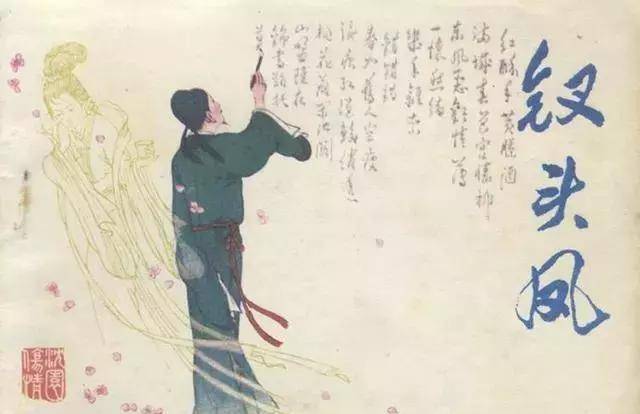 钗头凤
红酥手黄縢酒
满城春色宫墙柳
东风恶欢情薄
一怀愁绪
几年離索
错错错
春如舊人空瘦
泪痕红浥鲛绡透
桃花落闲池阁
山盟雖在
锦書難托
莫
沈園
傷情